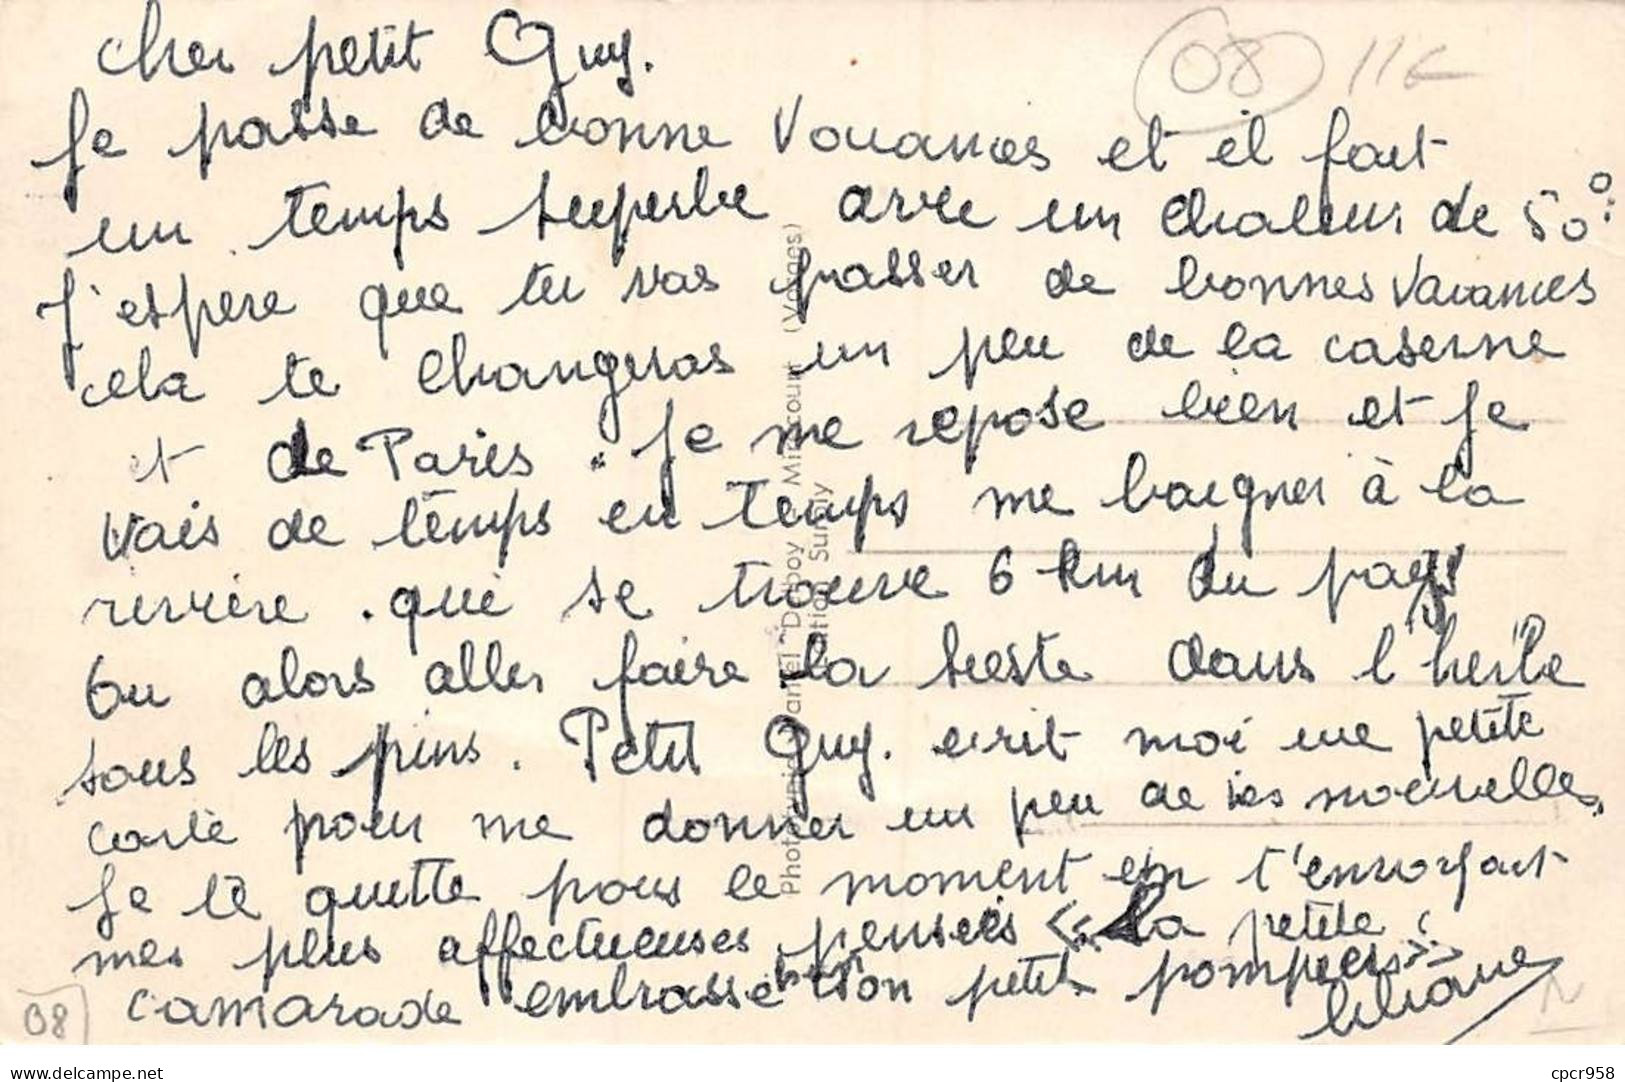 cher petit Guy.
08 11€
Je passe de bonne Vacances et il fait
un temps superbe avec un chaleur de 50°.
J'espere que tu vas passer de bonnes vacances
cela te changeras un peu de la caserne
et de Paris. Je me repose bien et Je
vais de temps en temps me baigner à la
rivière. qui se trouve 6 km du pays
Ou alors aller faire la sieste dans l'herbe
sous les pins. Petit Guy. ecrit moi une petite
carte pour me donner un peu de tes nouvelles.
Je te quitte pour le moment en t'envoyait
mes plus affectueuses pensées << La petite
camarade embrasse bien son petit pompier >>
Liliane
08
N
Phototypie Daniel Delboy Mirecourt (Vosges)
delcampe.net
cpcr958